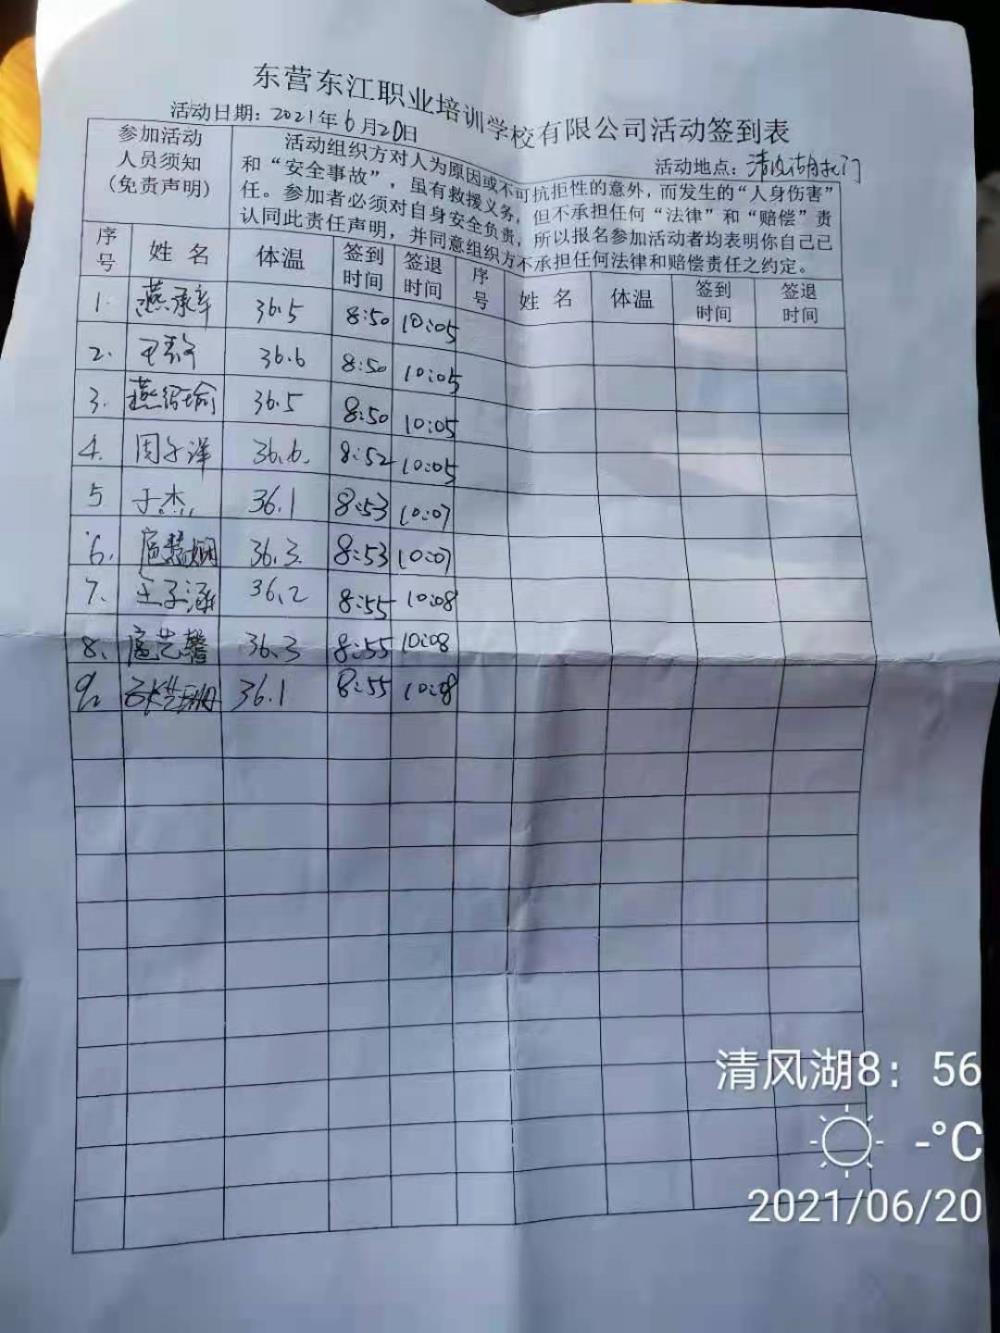 东营东江职业培训学校有限公司活动签到表
活动日期：2021年6月20日
活动地点：清风湖北门
参加活动
人员须知
（免责声明）
活动组织方对人为原因或不可抗拒性的意外，而发生的“人身伤害”
和“安全事故”，虽有救援义务，但不承担任何“法律”和“赔偿”责
任。参加者必须对自身安全负责，所以报名参加活动者均表明你自己已
认同此责任声明，并同意组织方不承担任何法律和赔偿责任之约定。
序号 姓名 体温 签到时间 签退时间 序号 姓名 体温 签到时间 签退时间
1. 36.5 8:50 10:05
2. 36.6 8:50 10:05
3. 36.5 8:50 10:05
4. 周子洋 36.6. 8:52 10:05
5 于杰 36.1 8:53 10:07
6. 扈慧娴 36.3 8:53 10:07
7. 王子涵 36.2 8:55 10:08
8. 扈艺馨 36.3 8:55 10:08
9. 36.1 8:55 10:08
清风湖8：56
-°C
2021/06/20